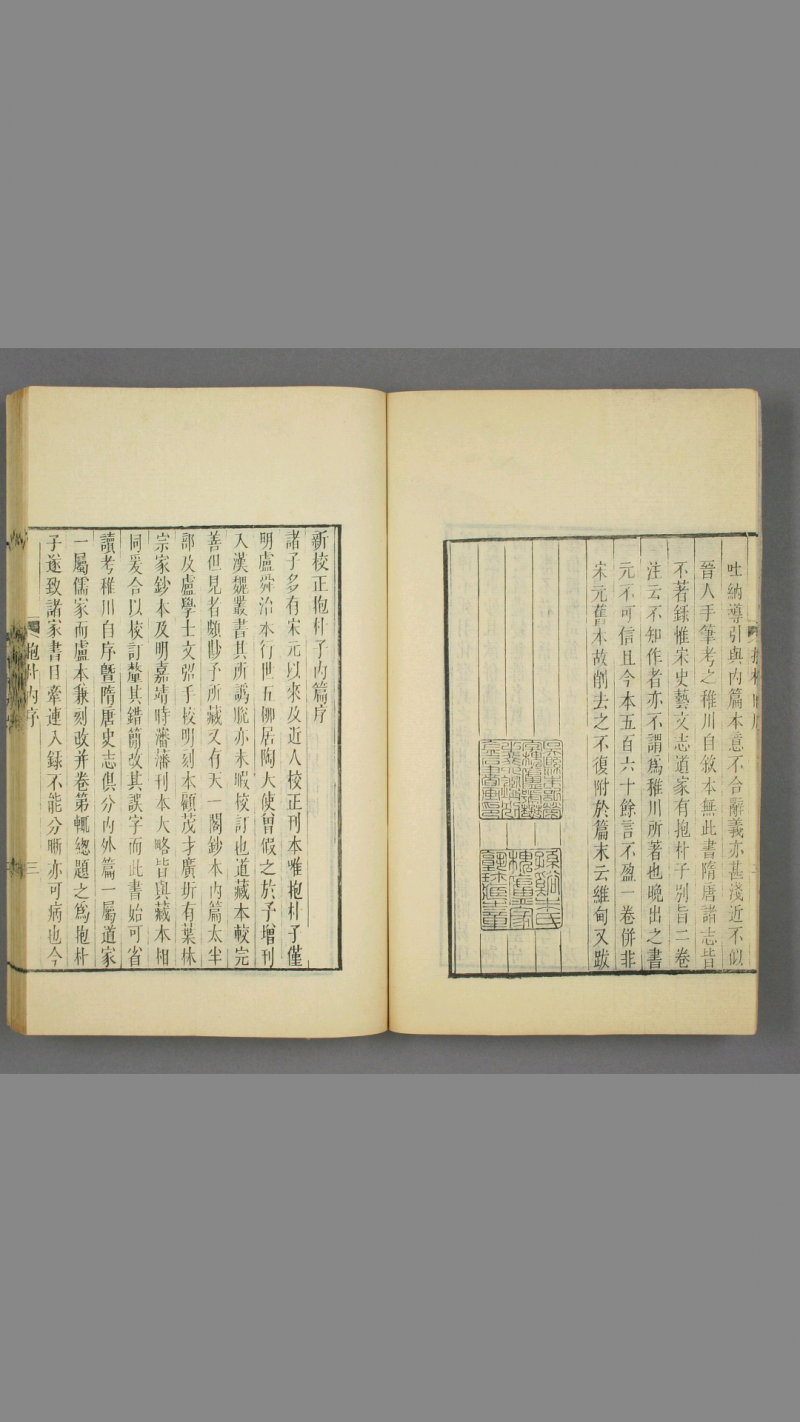 吐納導引與内篇本意不合辭義亦甚淺近不似
晉人手筆考之稚川自敘本無此書隋唐諸志皆
不著錄惟宋史藝文志道家有抱朴子别旨二卷
注云不知作者亦不謂爲稚川所著也晚出之書
元不可信且今本五百六十餘言不盈一卷併非
宋元舊本故削去之不復附於篇末云維甸又跋
新校正抱朴子内篇序
諸子多有宋元以來及近人校正刊本唯抱朴子僅
明盧舜治本行世五柳居陶大使曾假之於予增刊
入漢魏叢書其所譌脫亦未暇校訂也道藏本較完
善但見者頗尠予所藏又有天一閣鈔本内篇太半
部及盧學士文弨手校明刻本顧茂才廣圻有葉林
宗家鈔本及明嘉靖時瀋藩刊本大略皆與藏本相
同爰合以校訂釐其錯簡改其誤字而此書始可省
讀考稚川自序曁隋唐史志俱分内外篇一屬道家
一屬儒家而盧本兼刻改并卷第輒總題之爲抱朴
子遂致諸家書目牽連入録不能分晰亦可病也今
抱朴内序
三